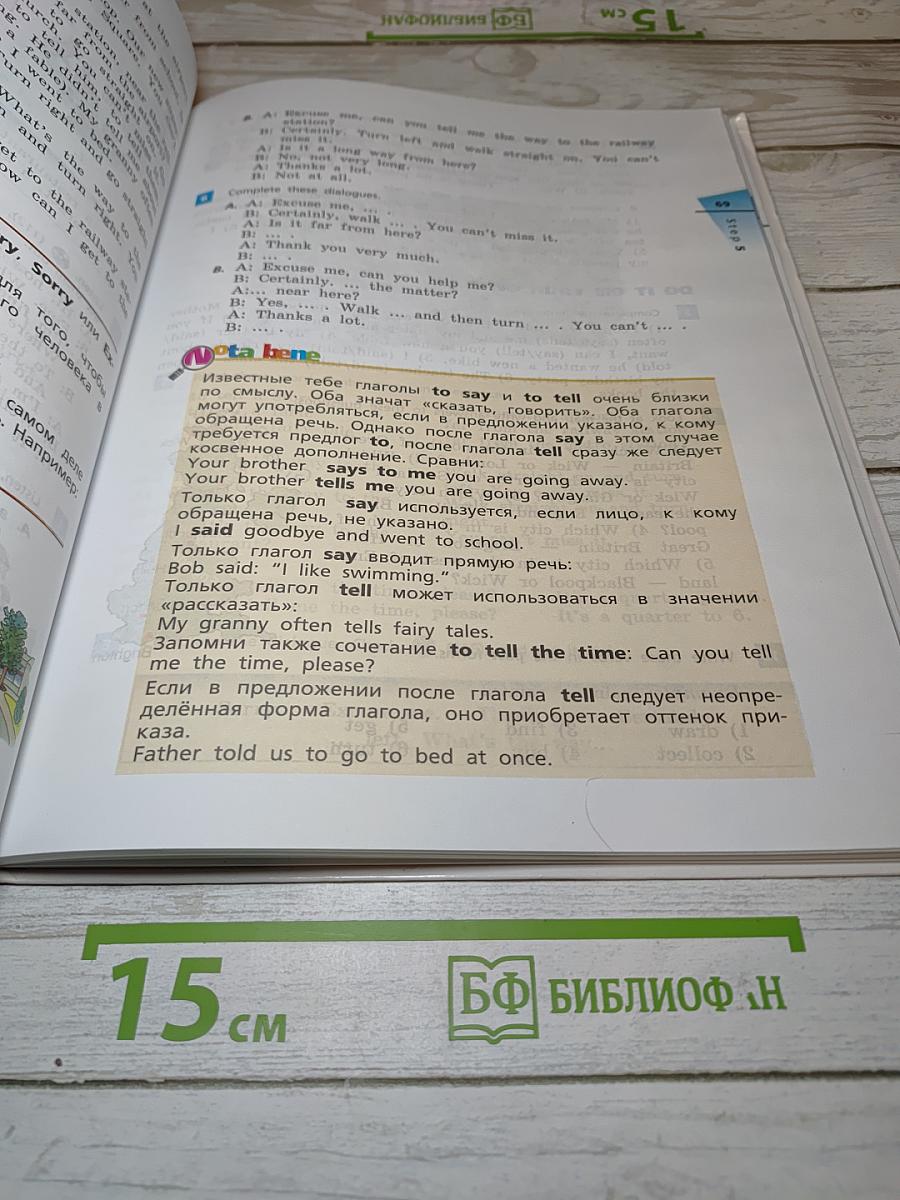 БИБЛИОФАН
БФ
15 см
a
at the
station
church
to go
fable
him
I went
my granny
turn right and go straight
What's the way to the
and turn right. You
get to the railway sta-
ow can I get to the
ry, Sorry или Ex-
для того, чтобы
го человека в
самом деле
. Например:
B. A: Excuse me, can you tell me the way to the railway
station?
B: Certainly. Turn left and walk straight on. You can't
miss it.
A: Is it a long way from here?
B: No, not very long.
A: Thanks a lot.
B: Not at all.
Complete these dialogues.
A. A: Excuse me, ... .
B: Certainly, walk ... . You can't miss it.
A: Is it far from here?
B: ... .
A: Thank you very much.
B: ... .
B. A: Excuse me, can you help me?
B: Certainly. ... the matter?
A:... near here?
B: Yes, ... . Walk ... and then turn ... . You can't ... .
A: Thanks a lot.
B: ... .
69
Step 5
Nota bene
Известные тебе глаголы to say и to tell очень близки
по смыслу. Оба значат «сказать, говорить». Оба глагола
могут употребляться, если в предложении указано, к кому
обращена речь. Однако после глагола say в этом случае
требуется предлог to, после глагола tell сразу же следует
косвенное дополнение. Сравни:
Your brother says to me you are going away.
Your brother tells me you are going away.
Только глагол say используется, если лицо, к кому
обращена речь, не указано.
I said goodbye and went to school.
Только глагол say вводит прямую речь:
Bob said: “I like swimming.“
Только глагол tell может использоваться в значении
«рассказать»:
My granny often tells fairy tales.
Запомни также сочетание to tell the time: Can you tell
me the time, please?
Если в предложении после глагола tell следует неопре-
делённая форма глагола, оно приобретает оттенок при-
каза.
Father told us to go to bed at once.
15 см
БФ БИБЛИОФАН